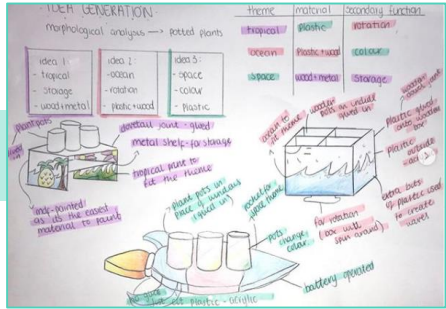 IDEA GENERATION.
morphological analysis → potted plants
theme material secondary function
tropical plastic rotation
ocean plastic + wood colour
space wood + metal storage
idea 1:
- tropical
- storage
- wood + metal
idea 2:
- ocean
- rotation
- plastic + wood
idea 3:
- space
- colour
- plastic
plant pots
dovetail joint - glued
metal shelf - for storage
tropical print to
fit the theme
material to paint
ocean to
fit theme
wooden
glued in
plastic glued
onto wooden
box
plastic
outside
extra bits
of plastic used
to create
waves
for rotation
(box will
spin around)
plant pots in
place of windows
(glued in)
rocket for
space theme
pots
change
colour
battery operated
plastic - acrylic